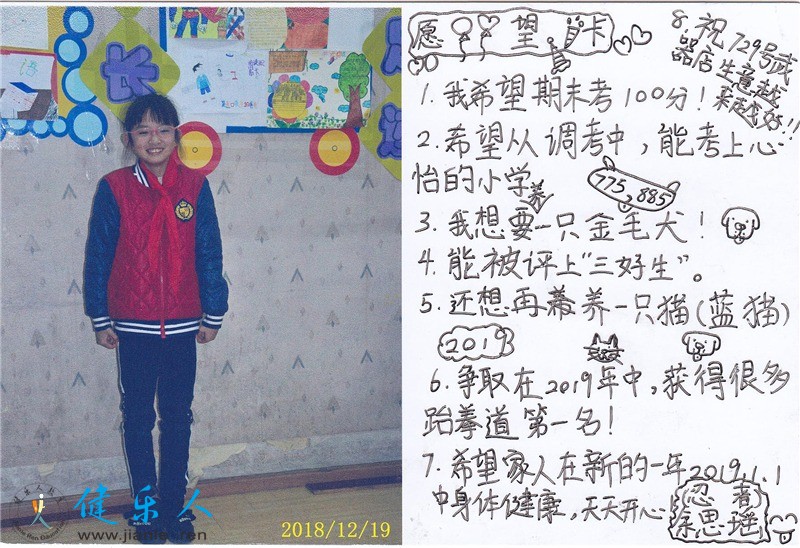 长
健乐人
2018/12/19
愿望卡
8.祝729号武
器店生意越
来越好!!
1.我希望期末考100分!
2.希望从调考中,能考上心
怡的小学
775 885
3.我想要养一只金毛犬!
4.能被评上“三好生”。
5.还想再养一只猫(蓝猫)
2019
6.争取在2019年中,获得很多
跆拳道第一名!
7.希望家人在新的一年
中身体健康,天天开心
2019.1.1
忍者
思瑶